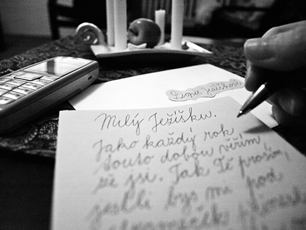 Dopis Ježíškovi
Milý Ježíšku.
Jako každý rok,
touto dobou věřím,
že jsi. Tak Tě prosím,
jestli bys mi pod
stromeček přinesl